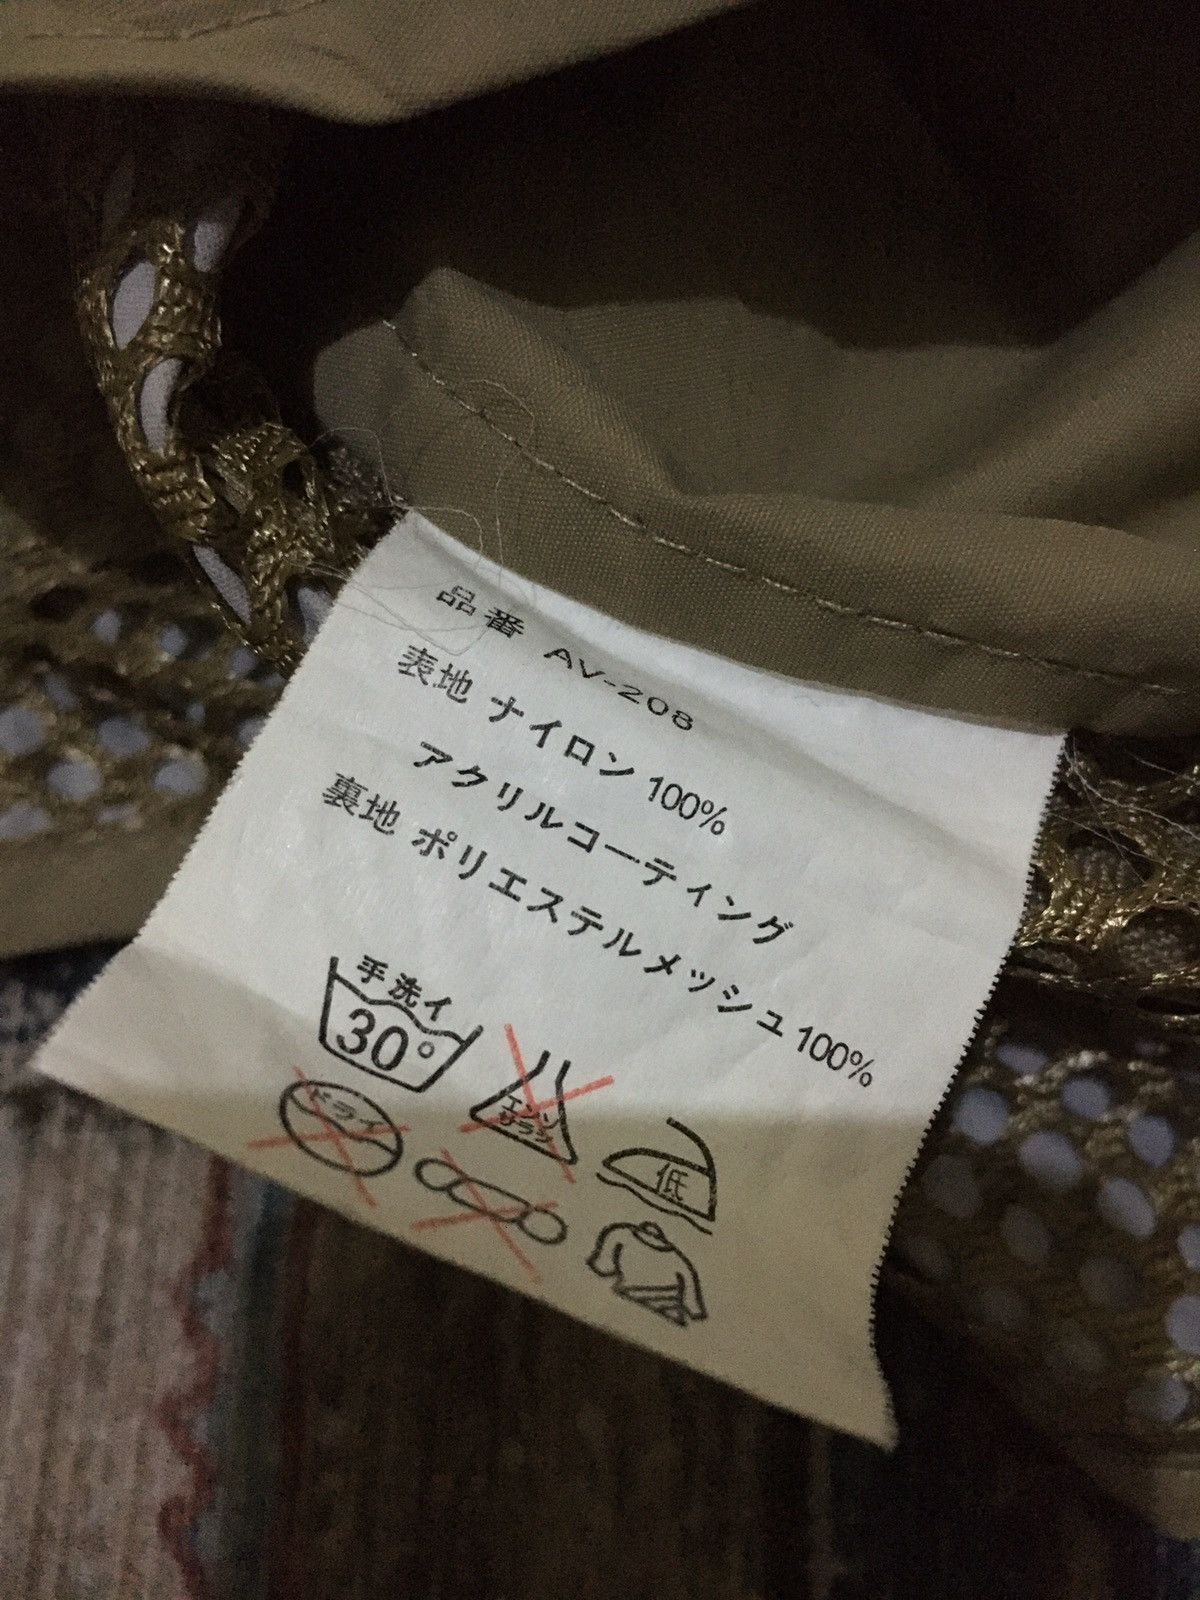 品番 AV-208
表地 ナイロン 100%
アクリルコーティング
裏地 ポリエステルメッシュ 100%
手洗イ
30°
エンソ
サラシ
低
ドライ